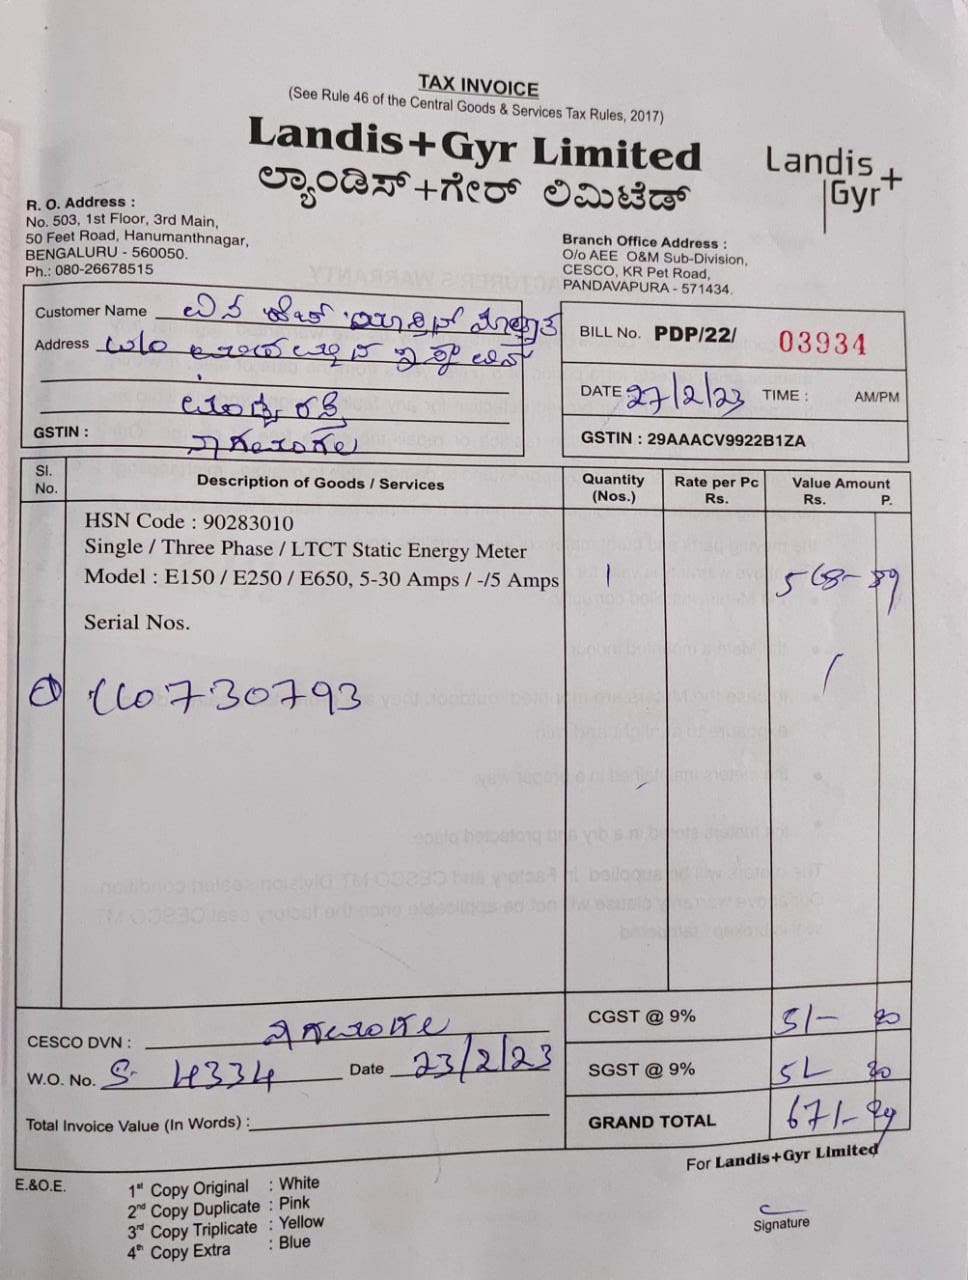 TAX INVOICE
(See Rule 46 of the Central Goods & Services Tax Rules, 2017)
Landis+Gyr Limited
ಲ್ಯಾಂಡಿಸ್+ಗೇರ್ ಲಿಮಿಟೆಡ್
Landis+
Gyr
R. O. Address :
No. 503, 1st Floor, 3rd Main,
50 Feet Road, Hanumanthnagar,
BENGALURU - 560050.
Ph.: 080-26678515
Branch Office Address :
O/o AEE O&M Sub-Division,
CESCO, KR Pet Road,
PANDAVAPURA - 571434.
Customer Name
Address
GSTIN :
BILL No. PDP/22/ 03934
DATE 27/2/23 TIME : AM/PM
GSTIN : 29AAACV9922B1ZA
Sl. No. Description of Goods / Services Quantity (Nos.) Rate per Pc Rs. Value Amount Rs. P.
HSN Code : 90283010
Single / Three Phase / LTCT Static Energy Meter
Model : E150 / E250 / E650, 5-30 Amps / -/5 Amps 1 568- 89
Serial Nos.
CGST @ 9% 51/-
CESCO DVN :
SGST @ 9%
W.O. No. S- 4334 Date 23/2/23
Total Invoice Value (In Words) :
GRAND TOTAL 671/-
For Landis+Gyr Limited
E.&O.E.
1st Copy Original : White
2nd Copy Duplicate : Pink
3rd Copy Triplicate : Yellow
4th Copy Extra : Blue
Signature